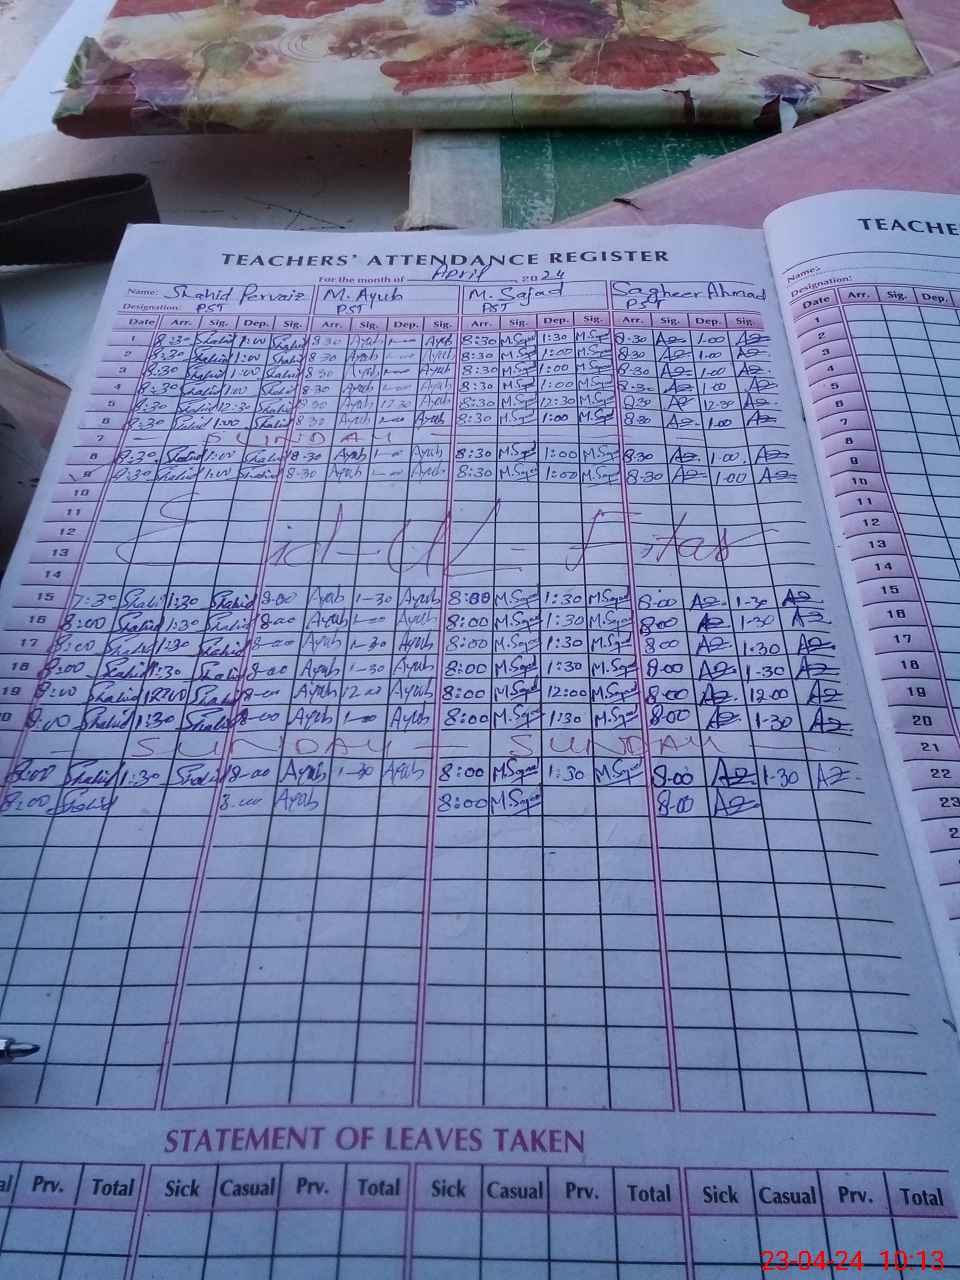 TEACHERS' ATTENDANCE REGISTER
For the month of April 2024
Name: Shahid Pervaiz M. Ayub M. Sajad Sagheer Ahmad
Designation: PST PST PST PST
Date Arr. Sig. Dep. Sig. Arr. Sig. Dep. Sig. Arr. Sig. Dep. Sig. Arr. Sig. Dep. Sig.
1 8:30 Shahid 1:00 Shahid 8:30 Ayub 1-00 Ayub 8:30 1:30 8-30 1-00
2 8:30 Shahid 1:00 Shahid 8-30 Ayub 1-00 Ayub 8:30 1:00 8-30 1-00
3 8:30 Shahid 1:00 Shahid 8-30 Ayub 1-00 Ayub 8:30 1:00 8-30 1-00
4 8:30 Shahid 1:00 Shahid 8-30 Ayub 1-00 Ayub 8:30 1:00 8-30 1-00
5 8:30 Shahid 12:30 Shahid 8-30 Ayub 12-30 Ayub 8:30 12:30 8-30 12-30
6 8:30 Shahid 1:00 Shahid 8-30 Ayub 1-00 Ayub 8:30 1:00 8-30 1-00
7 SUNDAY
8 8:30 Shahid 1:00 Shahid 8-30 Ayub 1-00 Ayub 8:30 1:00 8-30 1-00
9 8:30 Shahid 1:00 Shahid 8-30 Ayub 1-00 Ayub 8:30 1:00 8-30 1-00
10
11
12 Eid-Ul-Fitar
13
14
15 7:30 Shahid 1:30 Shahid 8-00 Ayub 1-30 Ayub 8:00 1:30 8-00 1-30
16 8:00 Shahid 1:30 Shahid 8-00 Ayub 1-00 Ayub 8:00 1:30 8-00 1-30
17 8:00 Shahid 1:30 Shahid 8-00 Ayub 1-30 Ayub 8:00 1:30 8-00 1-30
18 8:00 Shahid 1:30 Shahid 8-00 Ayub 1-30 Ayub 8:00 1:30 8-00 1-30
19 8:00 Shahid 12:00 Shahid 8-00 Ayub 12-00 Ayub 8:00 12:00 8-00 12-00
20 8:00 Shahid 1:30 Shahid 8-00 Ayub 1-00 Ayub 8:00 1:30 8-00 1-30
SUNDAY SUNDAY
8:00 Shahid 1:30 Shahid 8-00 Ayub 1-30 Ayub 8:00 1:30 8-00 1-30
8:00 Shahid 8-00 Ayub 8:00 8-00
STATEMENT OF LEAVES TAKEN
Prv. Total Sick Casual Prv. Total Sick Casual Prv. Total Sick Casual Prv. Total
TEACHE
Name:
Designation:
Date Arr. Sig. Dep.
1
2
3
4
5
6
7
8
9
10
11
12
13
14
15
16
17
18
19
20
21
22
23
23-04-24 10:13